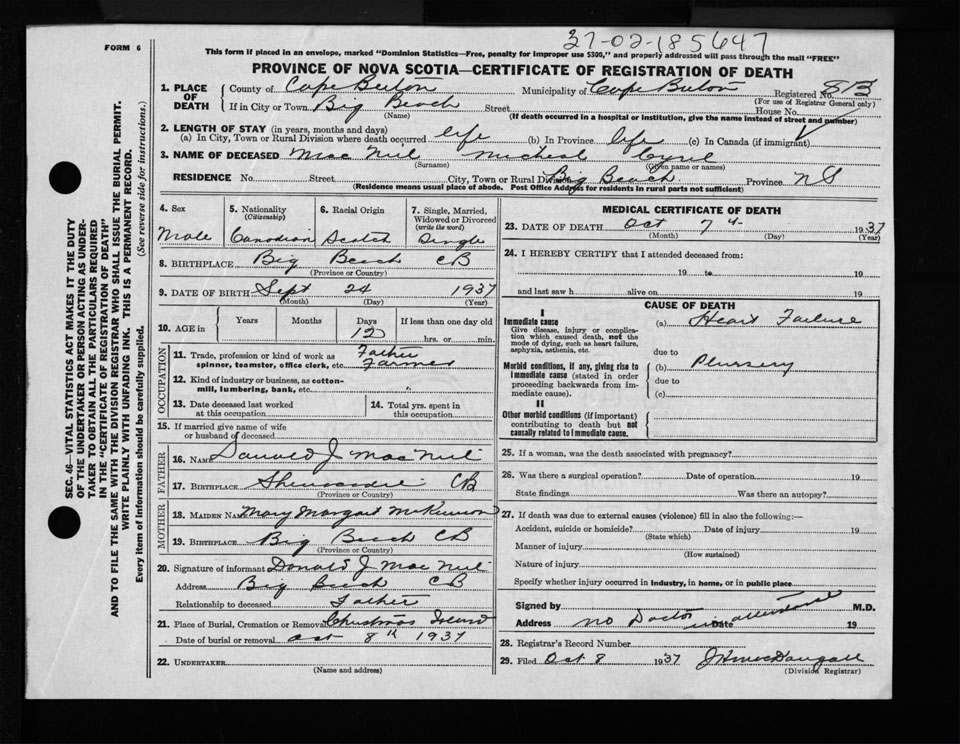 37-02-185647
FORM 6
This form if placed in an envelope, marked "Dominion Statistics—Free, penalty for improper use $300," and properly addressed will pass through the mail "FREE"
PROVINCE OF NOVA SCOTIA—CERTIFICATE OF REGISTRATION OF DEATH
SEC. 46—VITAL STATISTICS ACT MAKES IT THE DUTY
OF THE UNDERTAKER OR PERSON ACTING AS UNDER-
TAKER TO OBTAIN ALL THE PARTICULARS REQUIRED
IN THE "CERTIFICATE OF REGISTRATION OF DEATH"
AND TO FILE THE SAME WITH THE DIVISION REGISTRAR WHO SHALL ISSUE THE BURIAL PERMIT.
WRITE PLAINLY WITH UNFADING INK. THIS IS A PERMANENT RECORD.
Every item of information should be carefully supplied. (See reverse side for instructions.)
1. PLACE OF DEATH County of Cape Breton Municipality of Cape Breton Registered No. 813
(For use of Registrar General only)
If in City or Town Big Beach Street House No.
(Name) (If death occurred in a hospital or institution, give the name instead of street and number)
2. LENGTH OF STAY (in years, months and days)
(a) In City, Town or Rural Division where death occurred life (b) In Province life (c) In Canada (if immigrant)
3. NAME OF DECEASED Mac Neil Micheal Cyril
(Surname) (Given name or names)
RESIDENCE No. Street City, Town or Rural Division Big Beach Province NS
(Residence means usual place of abode. Post Office Address for residents in rural parts not sufficient)
4. Sex 5. Nationality (Citizenship) 6. Racial Origin 7. Single, Married, Widowed or Divorced (write the word)
Male Canadian Scotch Single
8. BIRTHPLACE Big Beach CB
(Province or Country)
9. DATE OF BIRTH Sept 24 1937
(Month) (Day) (Year)
10. AGE in Years Months Days If less than one day old
12 hrs. or min.
OCCUPATION
11. Trade, profession or kind of work as spinner, teamster, office clerk, etc. Father Farmer
12. Kind of industry or business, as cotton-mill, lumbering, bank, etc. "
13. Date deceased last worked at this occupation 14. Total yrs. spent in this occupation
15. If married give name of wife or husband of deceased
FATHER
16. NAME Donald J Mac Neil
17. BIRTHPLACE CB
(Province or Country)
MOTHER
18. MAIDEN NAME Mary Margaret McKinnon
19. BIRTHPLACE Big Beach CB
(Province or Country)
20. Signature of informant Donald J Mac Neil
Address Big Beach CB
Relationship to deceased Father
21. Place of Burial, Cremation or Removal Christmas Island
Date of burial or removal Oct 8th 1937
22. UNDERTAKER
(Name and address)
MEDICAL CERTIFICATE OF DEATH
23. DATE OF DEATH Oct 7th 1937
(Month) (Day) (Year)
24. I HEREBY CERTIFY that I attended deceased from:
19 to 19
and last saw h alive on 19
CAUSE OF DEATH
I
Immediate cause
Give disease, injury or complication which caused death, not the mode of dying, such as heart failure, asphyxia, asthenia, etc.
(a) Heart Failure
due to
Morbid conditions, if any, giving rise to immediate cause (stated in order proceeding backwards from immediate cause).
(b) Pleuresy
due to
(c)
II
Other morbid conditions (if important) contributing to death but not causally related to immediate cause.
25. If a woman, was the death associated with pregnancy?
26. Was there a surgical operation? Date of operation 19
State findings Was there an autopsy?
27. If death was due to external causes (violence) fill in also the following:—
Accident, suicide or homicide? Date of injury 19
(State which)
Manner of injury
(How sustained)
Nature of injury
Specify whether injury occurred in industry, in home, or in public place
Signed by M.D.
Address no Doctor in attendance Date 19
28. Registrar's Record Number
29. Filed Oct 8 1937 J H MacDougall
(Division Registrar)